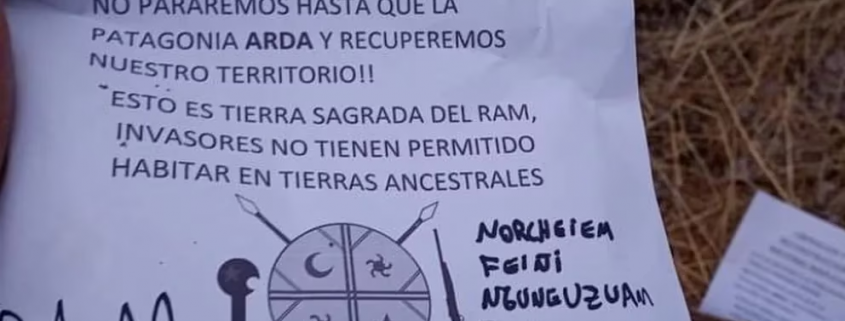 NO PARAREMOS HASTA QUE LA
PATAGONIA ARDA Y RECUPEREMOS
NUESTRO TERRITORIO!!
"ESTO ES TIERRA SAGRADA DEL RAM,
INVASORES NO TIENEN PERMITIDO
HABITAR EN TIERRAS ANCESTRALES
NORCHEIEM
FEIDI
NGUNGUZUAM